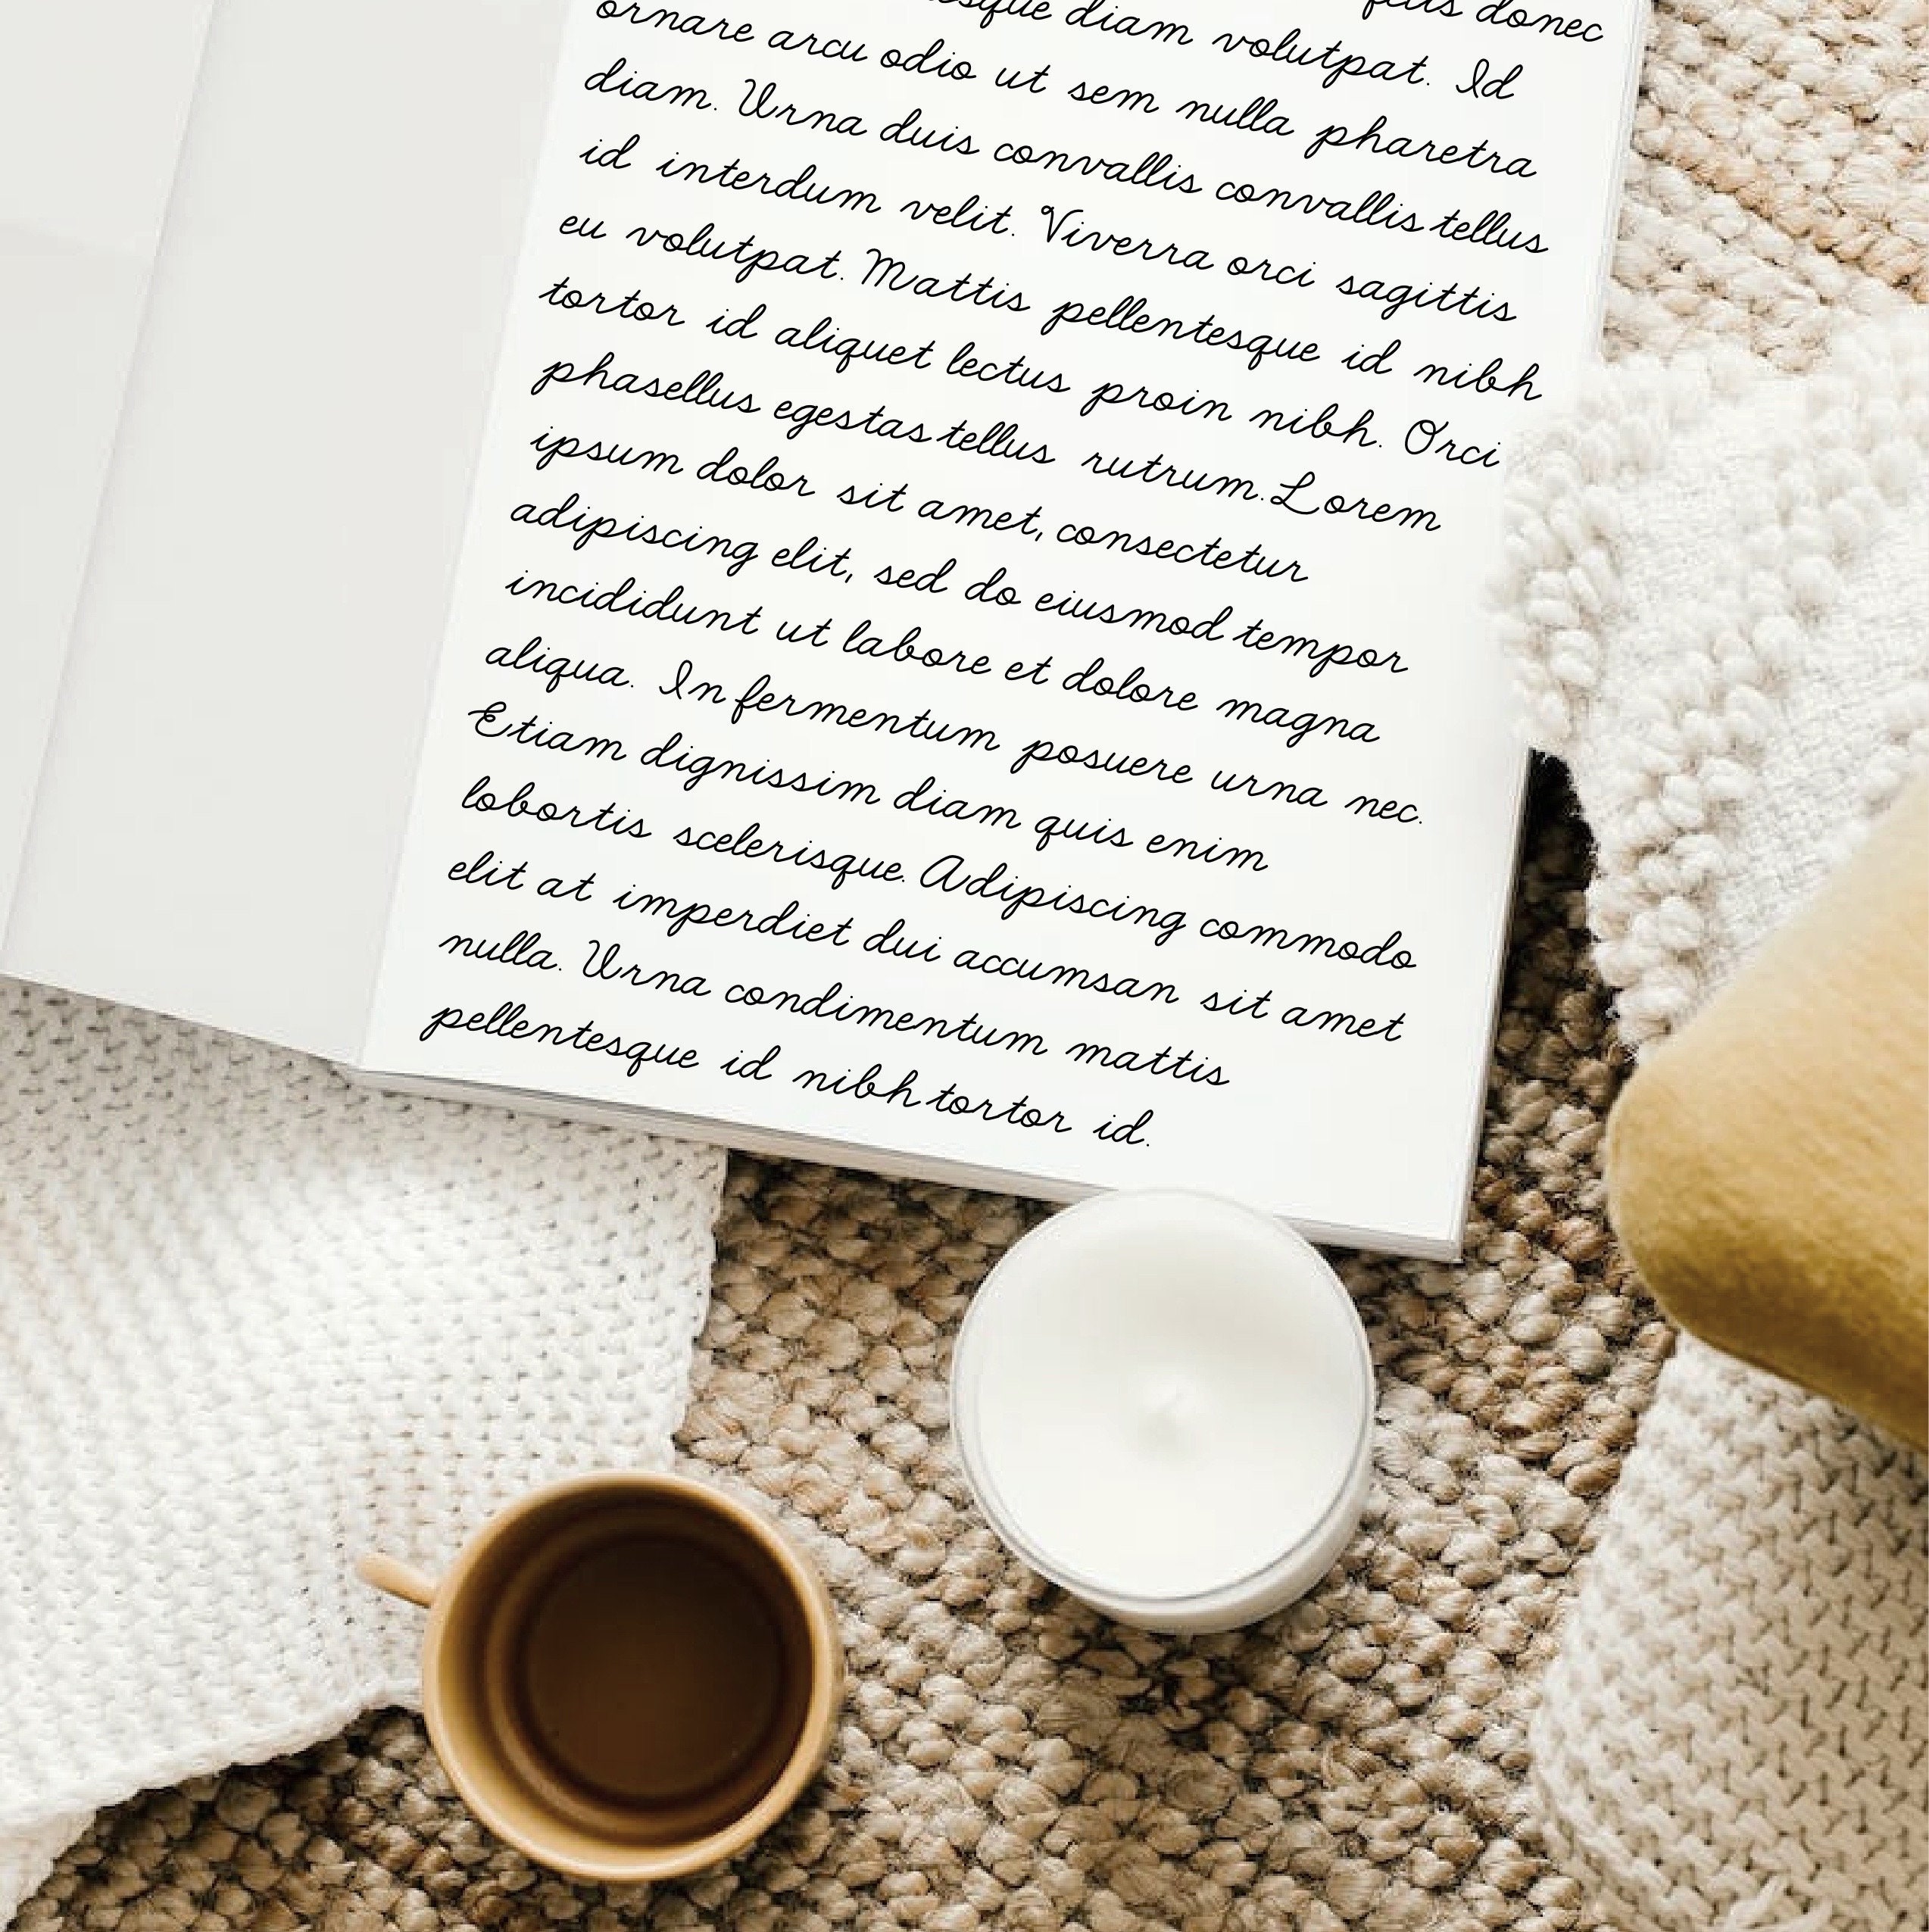 donec
diam volutpat. Id
ornare arcu odio ut sem nulla pharetra
diam. Urna duis convallis convallis tellus
id interdum velit. Viverra orci sagittis
eu volutpat. Mattis pellentesque id nibh
tortor id aliquet lectus proin nibh. Orci
phasellus egestas tellus rutrum. Lorem
ipsum dolor sit amet, consectetur
adipiscing elit, sed do eiusmod tempor
incididunt ut labore et dolore magna
aliqua. In fermentum posuere urna nec.
Etiam dignissim diam quis enim
lobortis scelerisque. Adipiscing commodo
elit at imperdiet dui accumsan sit amet
nulla. Urna condimentum mattis
pellentesque id nibh tortor id.